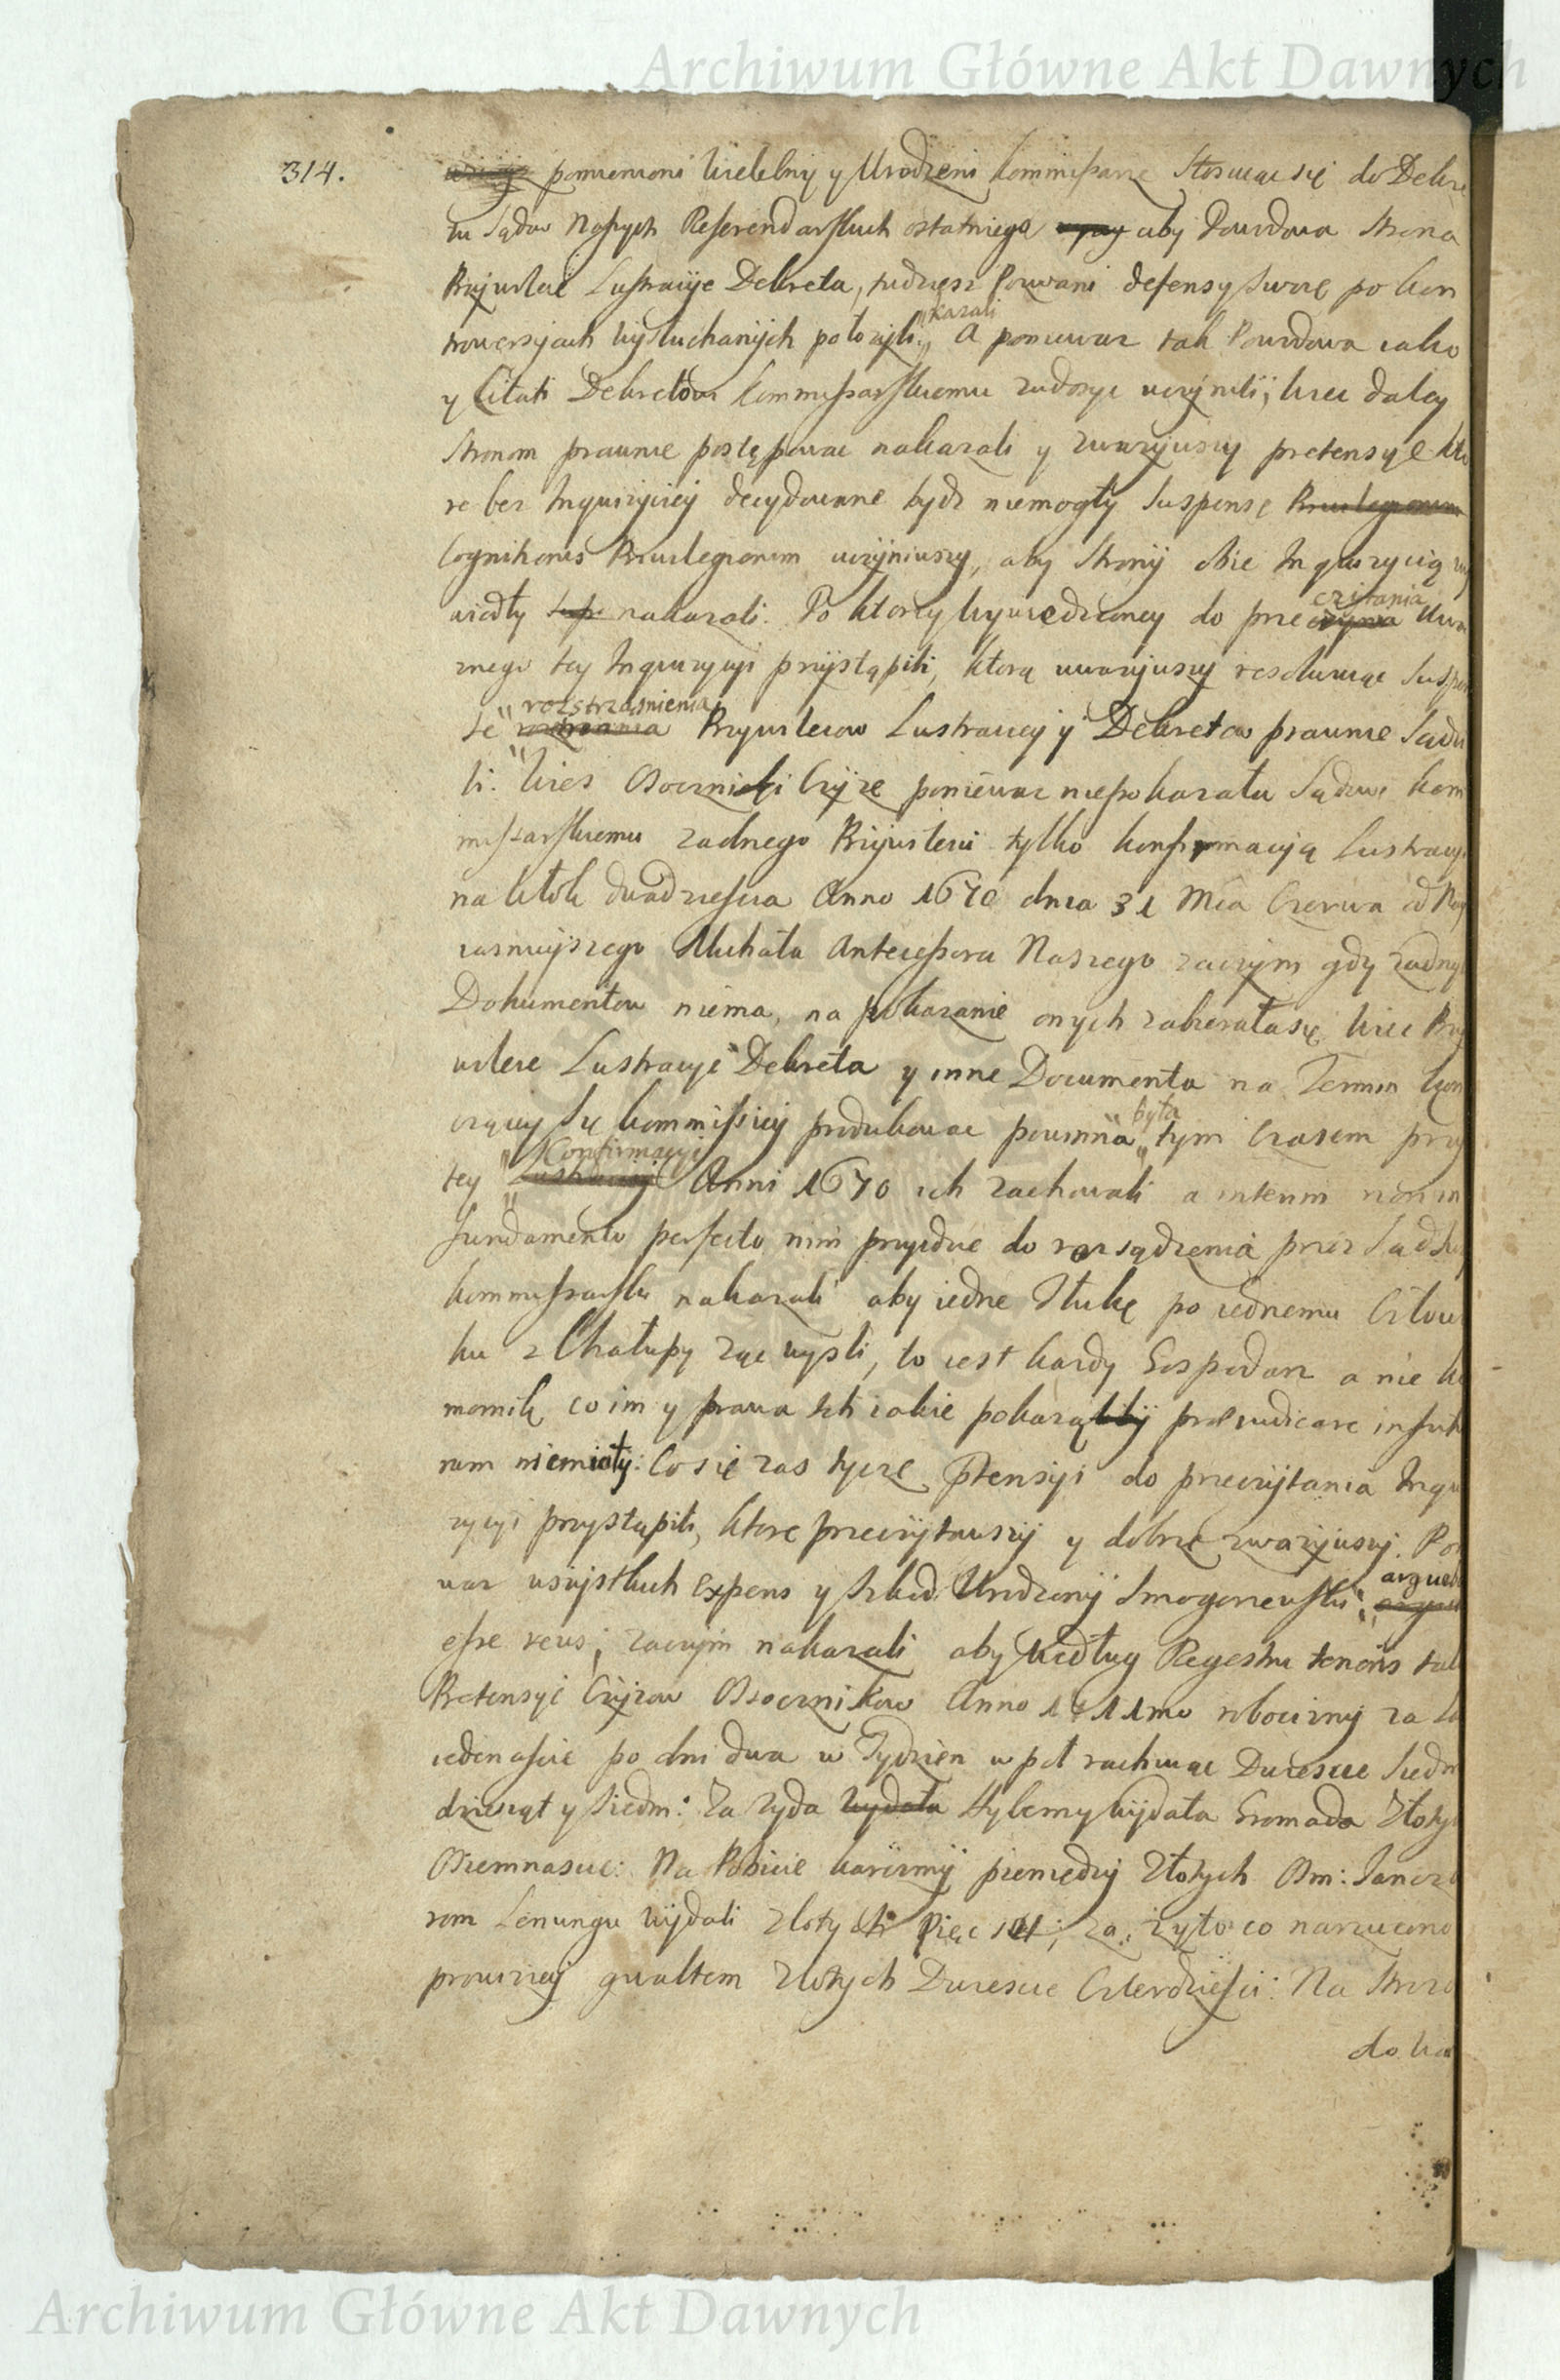 Archiwum Główne Akt Dawnych
314.
pomienioni Wielebny y Urodzeni Kommissarze Stosuiąc się do Dekre
tu Sądow Naszych Referendarskich ostatniego aby Powodowa Strona
Przywileie Lustracyie Dekreta, tudziesz Pozwani defensy Swoię po kon
trowersyiach wysłuchanych położyli „kazali„ A poniewaz tak Powodowa iako
y Citati Dekretowi Kommissarskiemu zadosyc uczynili, wiec daley
Stronom prawnie postępowac nakazali y zwazywszy pretensye kto
re bez Inquizyciey decydowane bydz niemogły Suspensę Priuilegiorum
Cognitionis Priuilegiorum uczyniwszy, aby Strony obie Inquizycią wy
wiedły nakazali. Po ktorey wywiedzioney do przeczytania uwa
znego tey Inquizycyi przystąpili, ktorą uwazywszy resolwuiąc Suspen
se "rozstrząśnienia Przywileiow Lustracey y Dekretow prawnie Sądzi
li: Wies Osoczniki Czyze poniewaz niepokazała Sądowi Kom
missarskiemu zadnego Przywileiu tylko konfirmacyią Lustracyi
na Włók dwadziescia Anno 1670 dnia 31 Mca Czerwca od Nay
iasnieyszego Michała Antecessora Naszego zaczym gdy zadnych
Dokumentow niema, na pokazanie onych zabierała się, wiec Przy
wileie Lustracyie Dekreta y inne Documenta na Termin kon
czącey Się Kommissiey produkowac powinna „była„ tym Czasem przy
tey "Confirmacyi Anni 1670 ich zachowali a interim non in
fundamento perfecto nim przyidzie do rozsądzenia przez Sąd Nasz
Kommissarski nakazali aby iedne Sztukę po iednemu Człowie
ku z Chałupy Ząc wyszli, to iest kazdy Gospodarz a nie ko
mornik, co im y prawa Ich iakie pokazą praeiudicare in futu
rum niemiały: Co się zas tycze Ptensyi do przeczytania Inqui
zycyi przystąpili, ktore przeczytawszy y dobrze zwazywszy. Po
waz wszystkich Expens y Szkod Urodzony Smogorzewski arguebatur
esse reus; zaczym nakazali aby według Regestru tenoris tal
Pretensyi Czyzow Osocznikow Anno 1711mo robocizny za
iedenascie po dni dwa w Tydzien w poł rachuiąc Dwiescie Siedm
dziesiąt y Siedm: Za Zyda wydała Gromada Złotych
Osiemnascie: Na Pobicie karczmy pieniędzy Złotych Osm: Jancza
rom Lenungu wydali złotych Pięc set; za: zyto co narzucono
prowizyey gwałtem Złotych Dwiescie Czterdziesci: Na Stroza
do ka
Archiwum Główne Akt Dawnych